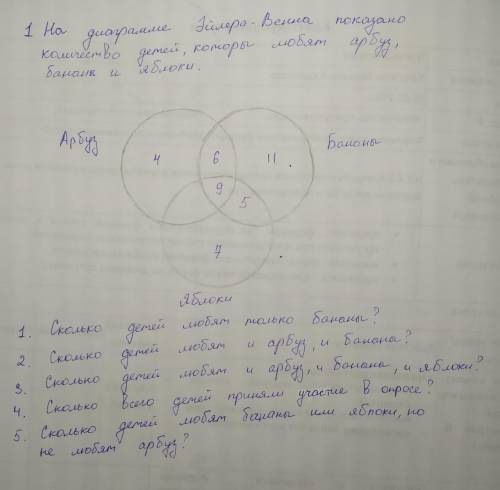 1 На диаграмме Эйлера-Венна показано
количество детей, которы любят арбуз,
бананы и яблоки.
Арбуз
Бананы
4
6
11
9
5
7
Яблоки
1. Сколько детей любят только бананы?
2. Сколько детей любят и арбуз, и бананы?
3. Сколько детей любят и арбуз, и бананы, и яблоки?
4. Сколько всего детей приняли участие в опросе?
5. Сколько детей любят бананы или яблоки, но
не любят арбуз?